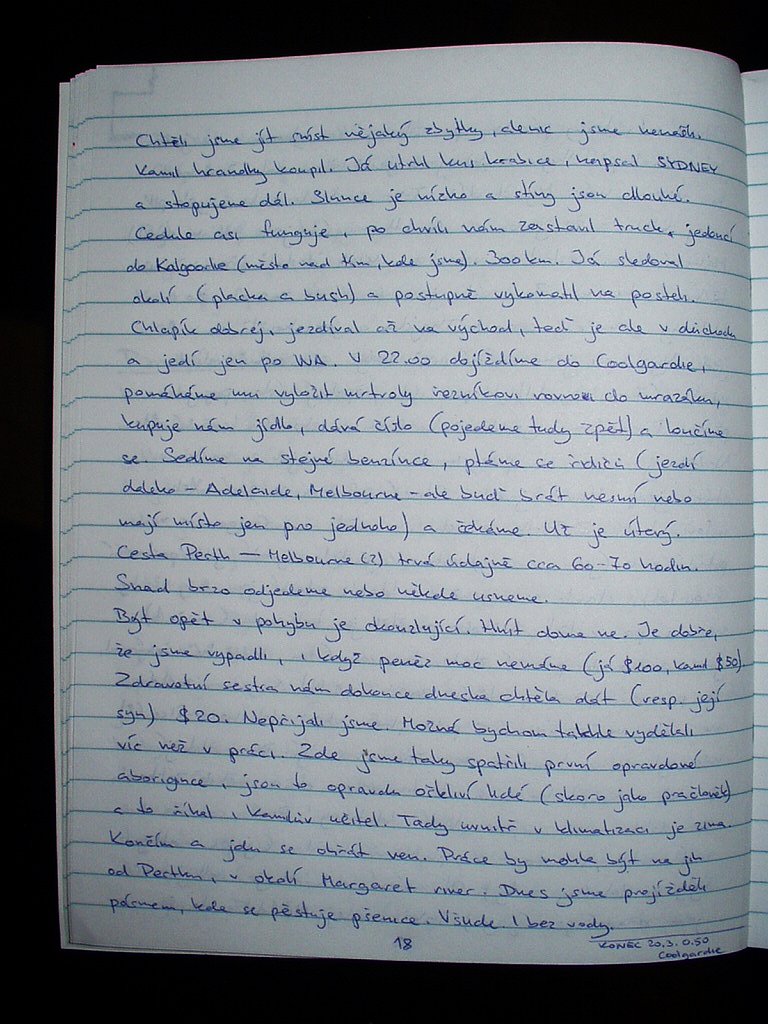 Chtěli jsme jít sníst nějaký zbytky, ale nic jsme nenašli.
Kamil hranolky koupil. Já utrhl kus krabice, napsal SYDNEY
a stopujeme dál. Slunce je nízko a stíny jsou dlouhé.
Cedule asi funguje, po chvíli nám zastavil truck, jedoucí
do Kalgoorlie (město nad tím, kde jsme). 300 km. Já sledoval
okolí (placka a bush) a postupně vykomatil na posteli.
Chlapík dobrej, jezdíval až na východ, teď je ale v důchodu
a jedí jen po WA. V 22.00 dojíždíme do Coolgardie,
pomáháme mu vyložit mrtvoly řezníkovi rovnou do mrazáku,
kupuje nám jídlo, dává číslo (pojedeme tudy zpět) a loučíme
se. Sedíme na stejné benzínce, ptáme se řidičů (jezdí
daleko - Adelaide, Melbourne - ale buď brát nesmí nebo
mají místo jen pro jednoho) a čekáme. Už je úterý.
Cesta Perth — Melbourne (?) trvá údajně cca 60-70 hodin.
Snad brzo odjedeme nebo někde usneme.
Být opět v pohybu je okouzlující. Hnít doma ne. Je dobře,
že jsme vypadli, i když peněz moc nemáme (já $100, kamil $50).
Zdravotní sestra nám dokonce dneska chtěla dát (resp. její
syn) $20. Nepřijali jsme. Možná bychom takhle vydělali
víc než v práci. Zde jsme taky spatřili první opravdové
aborigince, jsou to opravdu oškliví lidé (skoro jako pračlověk)
a to říkal i Kamilův učitel. Tady uvnitř v klimatizaci je zima.
Končím a jdu se ohřát ven. Práce by mohla být na jih
od Perthu, v okolí Margaret river. Dnes jsme projížděli
pásmem, kde se pěstuje pšenice. Všude. I bez vody.
18
KONEC 20.3. 0.50
Coolgardie